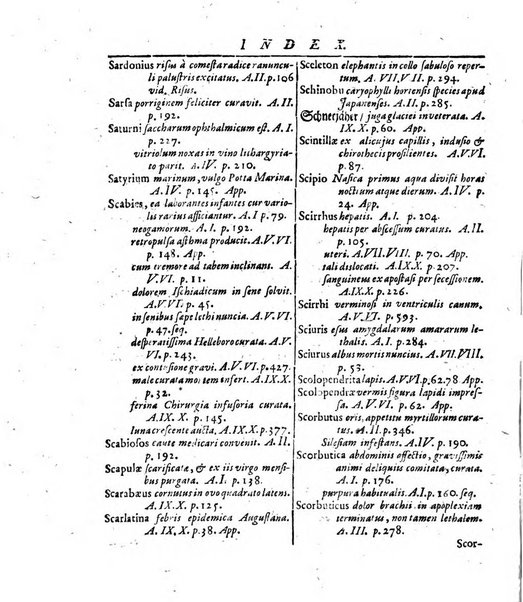 INDEX.
Sardonius risus à comesta radice ranuncu-
li palustris excitatus. A.II. p.106
vid. Risus.
Sarsa porriginem feliciter curavit. A.II.
p. 192.
Saturni saccharum ophthalmicum est. A.I.
p. 227.
vitriolum noxas in vino lithargyria-
to parit. A.IV. p. 210.
Satyrium marinum, vulgo Potta Marina.
A.IV. p. 145. App.
Scabies, ea laborantes infantes cur vario-
lis rarius afficiantur. A.I. p. 79.
neogamorum. A.I. p. 192.
retropulsa asthma producit. A.V.VI.
p. 148. App.
cum tremore ad tabem inclinans. A.
V.VI. p. 11.
dolorem Ischiadicum in sene solvit.
A.V.VI. p. 45.
in senibus sæpe lethi nuncia. A.V.VI.
p. 47. seq.
desperatissima Helleboro curata. A.V.
VI. p. 243.
ex contusione gravi. A.V.VI. p. 427.
male curata mortem infert. A.IX.X.
p. 32.
ferina Chirurgia infusoria curata.
A.IX.X. p. 145.
luna crescente aucta. A.IX.X. p. 377.
Scabiosos caute medicari convenit. A.II.
p. 192.
Scapulæ scarificatæ, & ex iis virgo mensi-
bus purgata. A.I. p. 138.
Scarabæus cornutus in ovo quadrato latens.
A.IX.X. p. 125.
Scarlatina febris epidemica Augustana.
A.IX.X. p. 38. App.
Sceleton elephantis in collo sabuloso reper-
tum. A.VII.VII. p. 294.
Schinobu caryophylli hortensis species apud
Japanenses. A.II. p. 285.
Schnetzäher / juga glaciei inveterata. A.
IX.X. p. 60. App.
Scintillæ ex alicujus capillis, indusio &
chirothecis prosilientes. A.V.VI.
p. 87.
Scipio Nasica primus aqua divisit horas
noctium atque dierum. A.IV. p.
24. App.
Scirrhus hepatis. A.I. p. 204.
hepatis per abscessum curatus. A.II.
p. 105.
uteri. A.VII.VIII. p. 70. App.
tali dislocati. A.IX.X. p. 207.
sanguineus ex apostasi per secessionem.
A.IX.X. p. 226.
Scirrhi verminosi in ventriculis canum.
A.V.VI. p. 593.
Sciuris esus amygdalarum amararum le-
thalis. A.I. p. 284.
Sciurus albus mortis nuncius. A.VII.VIII.
p. 53.
Scolopendrita lapis. A.V.VI. p. 62. 78 App.
Scolopendræ vermis figura lapidi impres-
sa. A.V.VI. p. 62. App.
Scorbutus oris, appetitu myrtillorum cura-
tus. A.II. p. 346.
Silesiam infestans. A.IV. p. 190.
Scorbutica abdominis affectio, gravissimis
animi deliquiis comitata, curata.
A.I. p. 176.
purpura habitualis. A.I. p. 160. seq.
Scorbuticus dolor brachii in apoplexiam
terminatus, non tamen lethalem.
A.III. p. 278.
Scor-